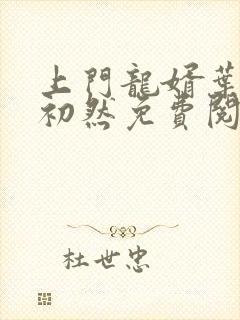 上門龍婿葉
初然免費閱
杜世忠